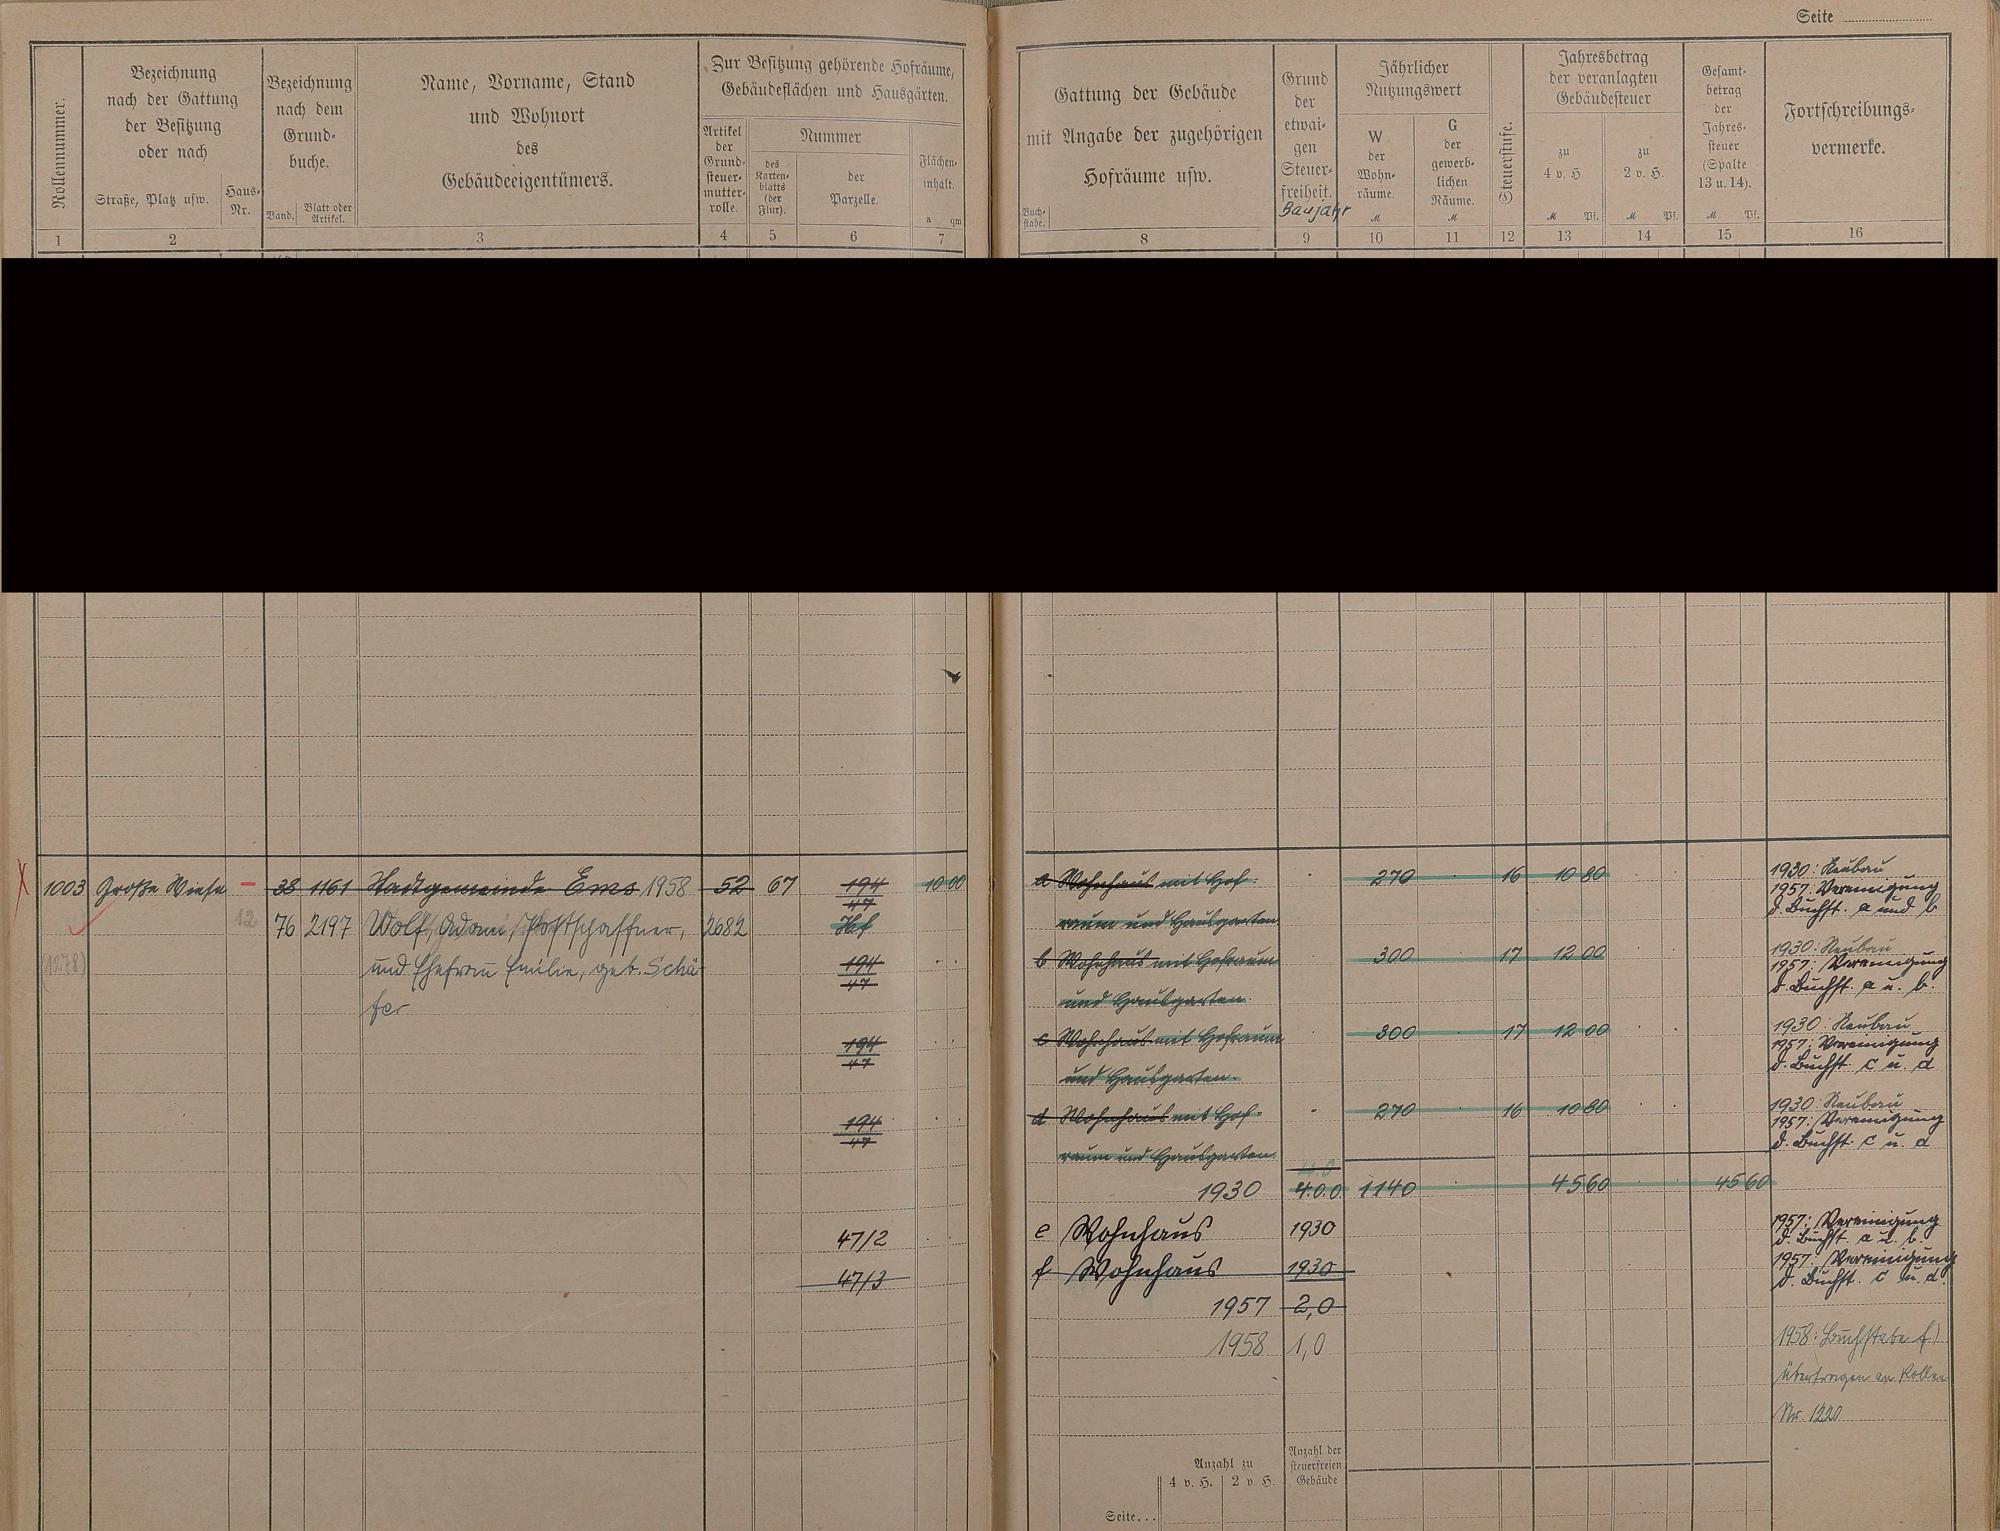 Seite
Rollennummer.
Bezeichnung
nach der Gattung
der Besitzung
oder nach
Straße, Platz usw.
Haus-
Nr.
Bezeichnung
nach dem
Grund-
buche.
Band.
Blatt oder
Artikel.
Name, Vorname, Stand
und Wohnort
des
Gebäudeeigentümers.
Zur Besitzung gehörende Hofräume,
Gebäudeflächen und Hausgärten.
Artikel
der
Grund-
steuer-
mutter-
rolle.
Nummer
des
Karten-
blatts
(der
Flur).
der
Parzelle.
Flächen-
inhalt.
a qm
1 2 3 4 5 6 7
Gattung der Gebäude
mit Angabe der zugehörigen
Hofräume usw.
Buch-
stabe.
Grund
der
etwai-
gen
Steuer-
freiheit.
Baujahr
Jährlicher
Nutzungswert
W
der
Wohn-
räume.
M
G
der
gewerb-
lichen
Räume.
M
Steuerstufe.
Jahresbetrag
der veranlagten
Gebäudesteuer
zu
4 v. H
M Pf.
zu
2 v. H.
M Pf.
Gesamt-
betrag
der
Jahres-
steuer
(Spalte
13 u. 14).
M Pf.
Fortschreibungs-
vermerke.
8 9 10 11 12 13 14 15 16
1003 Große Wiese – 38 1161 Stadtgemeinde Ems 1958 52 67 194/47 10 00
12 76 2197 Wolf, Adam, Postschaffner, 2682 Hf
(1278) und Ehefrau Emilie, geb. Schä- 194/47
fer
194/47
194/47
47/2
47/3
a Wohnhaus mit Hof- 270 16 10 80 1930: Neubau
raum und Hausgarten 1957: Vereinigung
d. Buchst. a und b
b Wohnhaus mit Hofraum 300 17 12 00 1930: Neubau
und Hausgarten. 1957: Vereinigung
d. Buchst. a u. b.
c Wohnhaus mit Hofraum 300 17 12 00 1930: Neubau
und Hausgarten. 1957: Vereinigung
d. Buchst. c u. d
d Wohnhaus mit Hof- 270 16 10 80 1930: Neubau
raum und Hausgarten 1957: Vereinigung
d. Buchst. c u. d
1930 4.0.0 1140 45 60 45 60
e Wohnhaus 1930 1957: Vereinigung
d. Buchst. a u. b.
f Wohnhaus 1930 1957: Vereinigung
d. Buchst. c u. d.
1957 2,0
1958 1,0 1958: Buchstabe f)
übertragen an Rollen
Nr. 1220
Anzahl zu
4 v. H. 2 v H.
Anzahl der
steuerfreien
Gebäude
Seite...